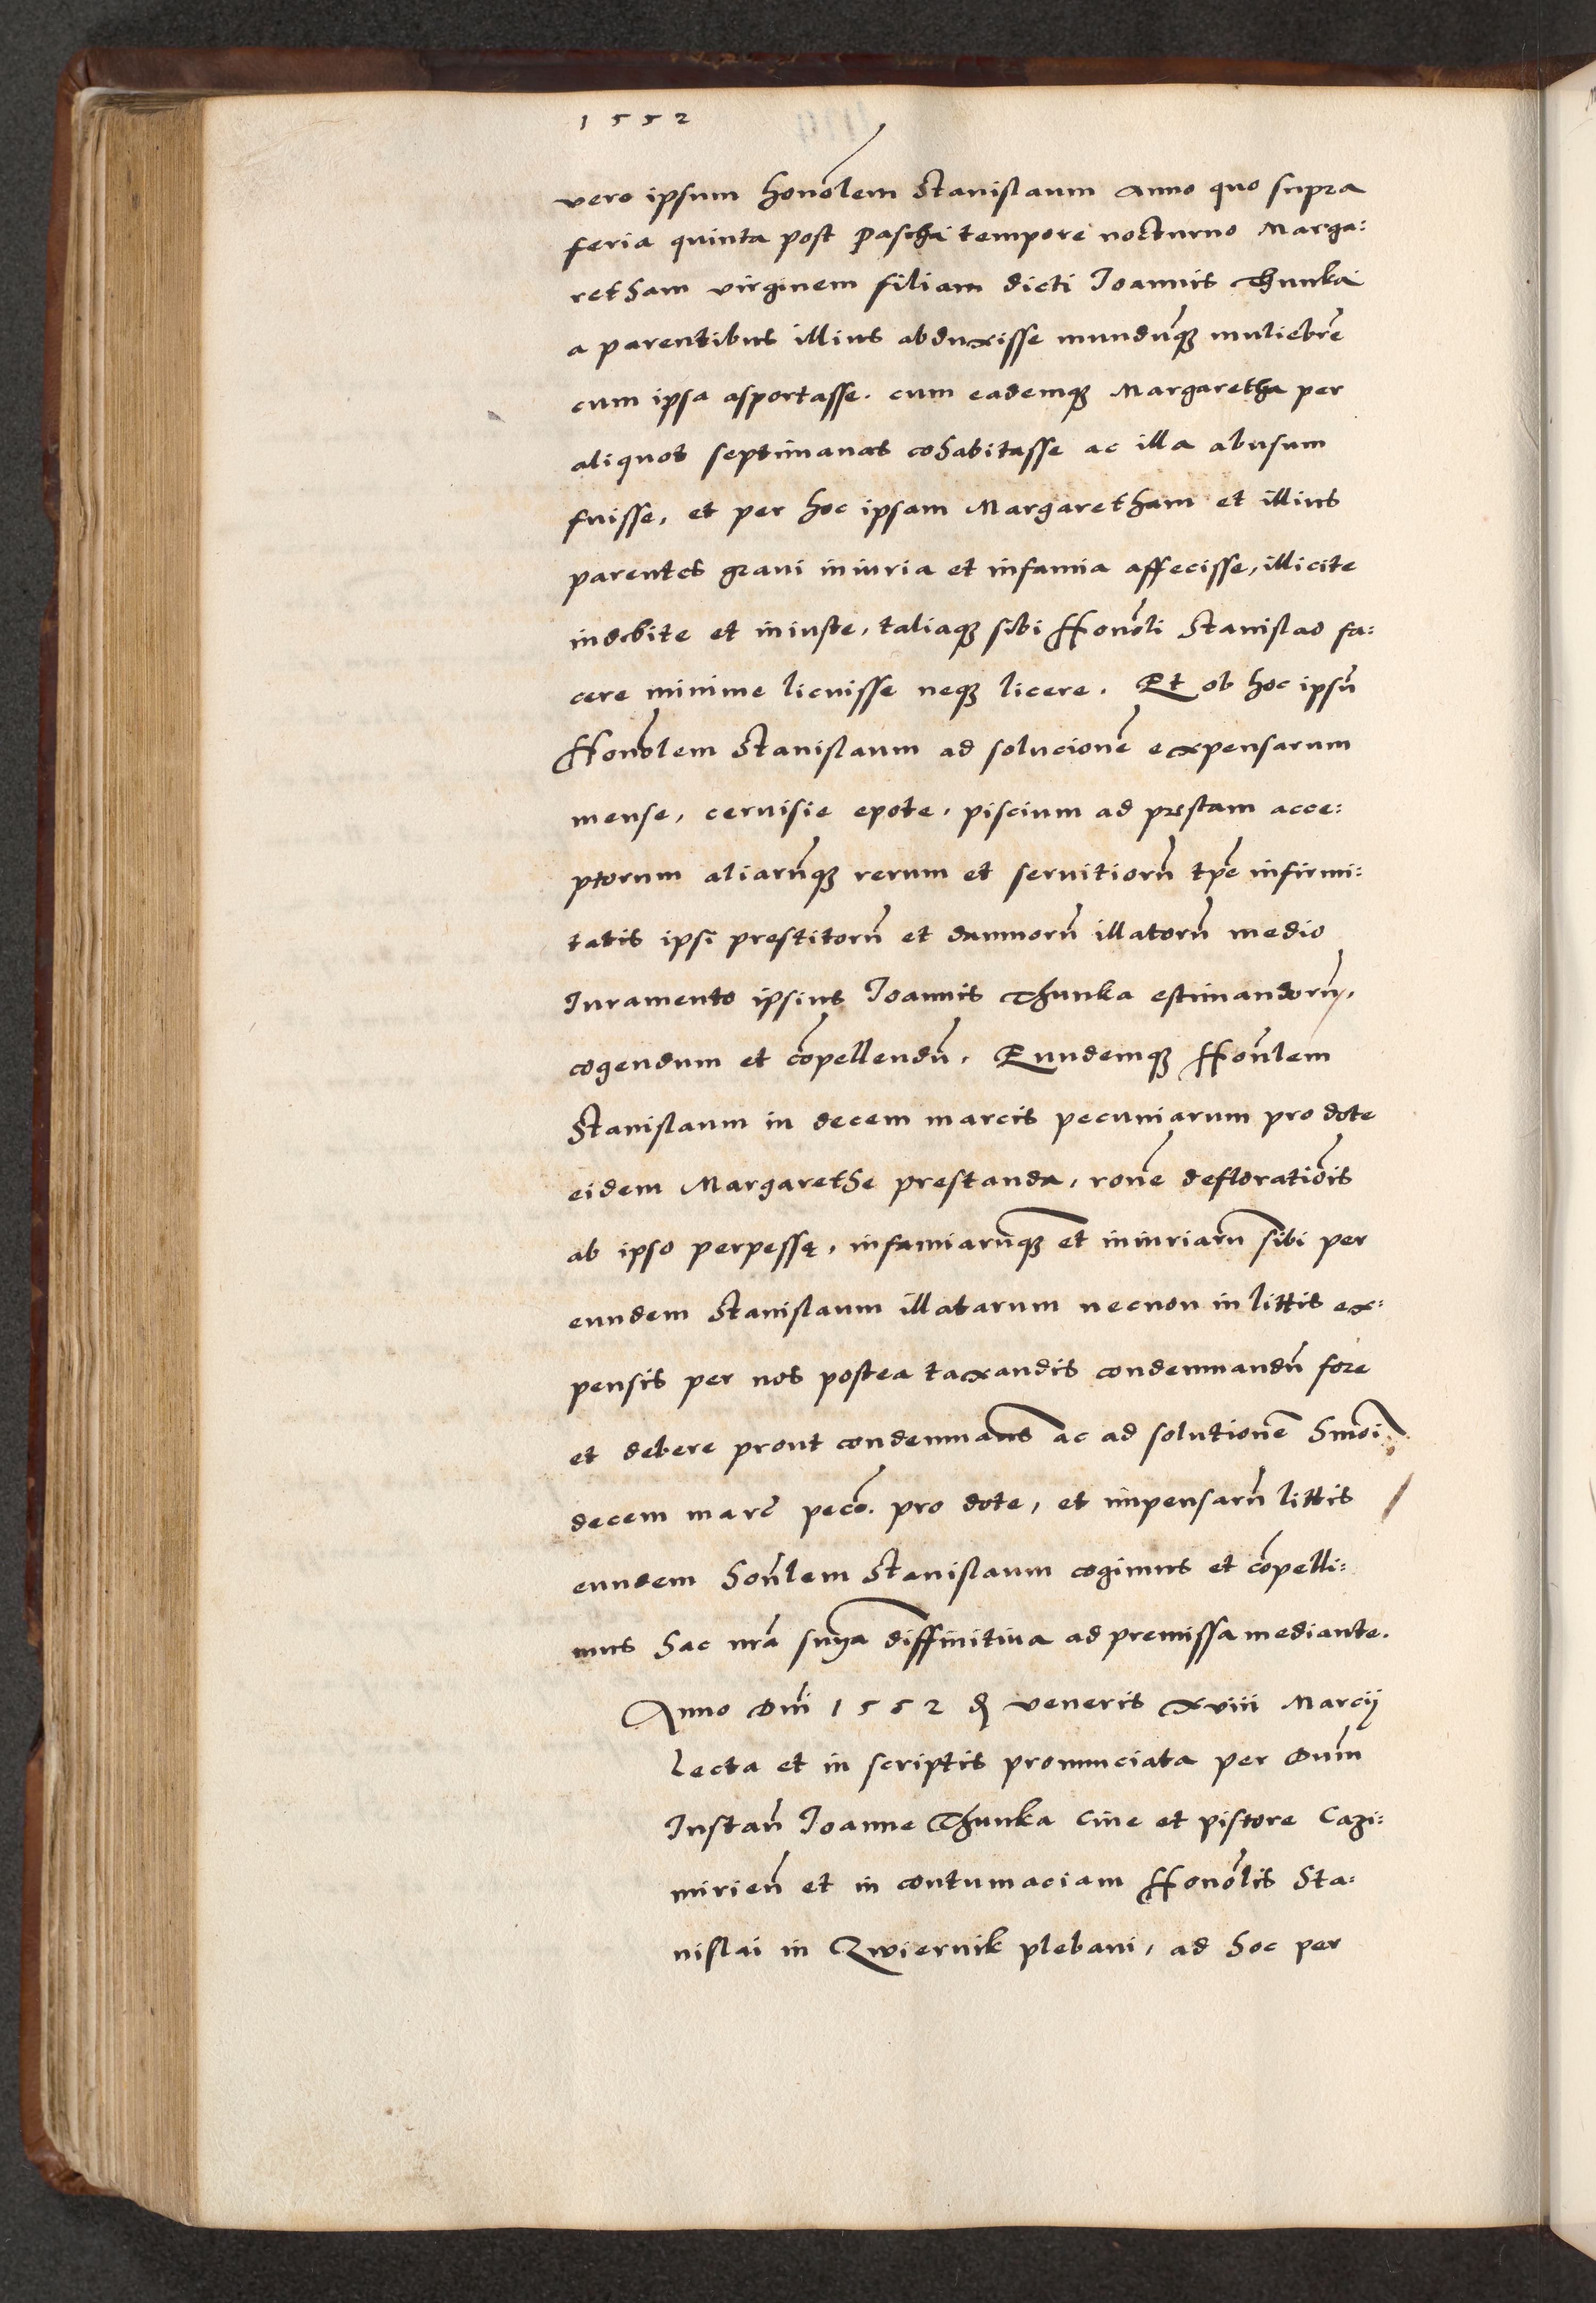 1552
vero ipsum honolem Stanislaum Anno quo supra
feria quinta post Pascha tempore nocturno Marga:
retham virginem filiam dicti Joannis Thunka
a parentibus illius abduxisse mundūq; muliebrē
cum ipsa asportasse. cum eademq; Margaretha per
aliquot septimanas cohabitasse ac illa abusum
fuisse, et per hoc ipsam Margaretham et illius
parentes graui iniuria et infamia affecisse, illicite
indebite et iniuste, taliaq; sibi Honoli Stanislao fa:
cere minime licuisse neq; licere. Et ob hoc ipsū
Honolem Stanislaum ad solucionē expensarum
mense, ceruisie epote, piscium ad prstam acce:
ptorum aliarūq; rerum et seruitiorū tpē infirmi:
tatis ipsi prestitorū et damnorū illatorū medio
Juramento ipsius Joannis Thunka estimandorū,
cogendum et cōpellendū. Eundemq; Honlem
Stanislaum in decem marcis pecuniarum pro dote
eidem Margarethe prestanda, ronē defloratiōis
ab ipso perpessę, infamiarūq; et iniuriarū sibi per
eundem Stanislaum illatarum necnon in littis ex:
pensis per nos postea taxandis condemnandū fore
et debere prout condemnams ac ad solutionē hmōi
decem marc pecō. pro dote, et impensarū littis
eundem honlem Stanislaum cogimus et cōpelli:
mus hac nrā snīa diffinitiua ad premissa mediante.
Anno Dnī 1552 d veneris xviii Marcij
Lecta et in scriptis pronunciata per Dnm
Instan Joanne Thunka Ciue et pistore Cazi:
mirien et in contumaciam Honolis Sta:
nislai in Zwiernik plebani, ad hoc per